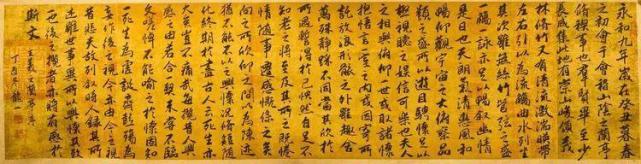 永和九年歲在癸丑暮春
之初會于會稽山陰之蘭亭
脩禊事也羣賢畢至少
長咸集此地有崇山峻領茂
林脩竹又有清流激湍暎帶
左右引以為流觴曲水列坐
其次雖無絲竹管弦之盛
一觴一詠亦足以暢叙幽情
是日也天朗氣清惠風和
暢仰觀宇宙之大俯察品
類之盛所以遊目騁懷足以
極視聽之娛信可樂也夫人
之相與俯仰一世或取諸懷
抱悟言一室之內或因寄所
託放浪形骸之外雖趣舍
萬殊靜躁不同當其欣於
所遇暫得於己怏然自足不
知老之將至及其所之既惓
情隨事遷感慨係之矣向
之所欣俛仰之間以為陳迹
猶不能不以之興懷況脩短隨
化終期於盡古人云死生亦
大矣豈不痛哉每攬昔人興
感之由若合一契未嘗不臨
文嗟悼不能喻之於懷固知
一死生為虛誕齊彭殤為
妄作後之視今亦由今之視
昔悲夫故列敘時人錄其所
述雖世殊事異所以興懷其致
一也後之攬者亦將有感於
斯文 王羲之蘭亭序
丁酉